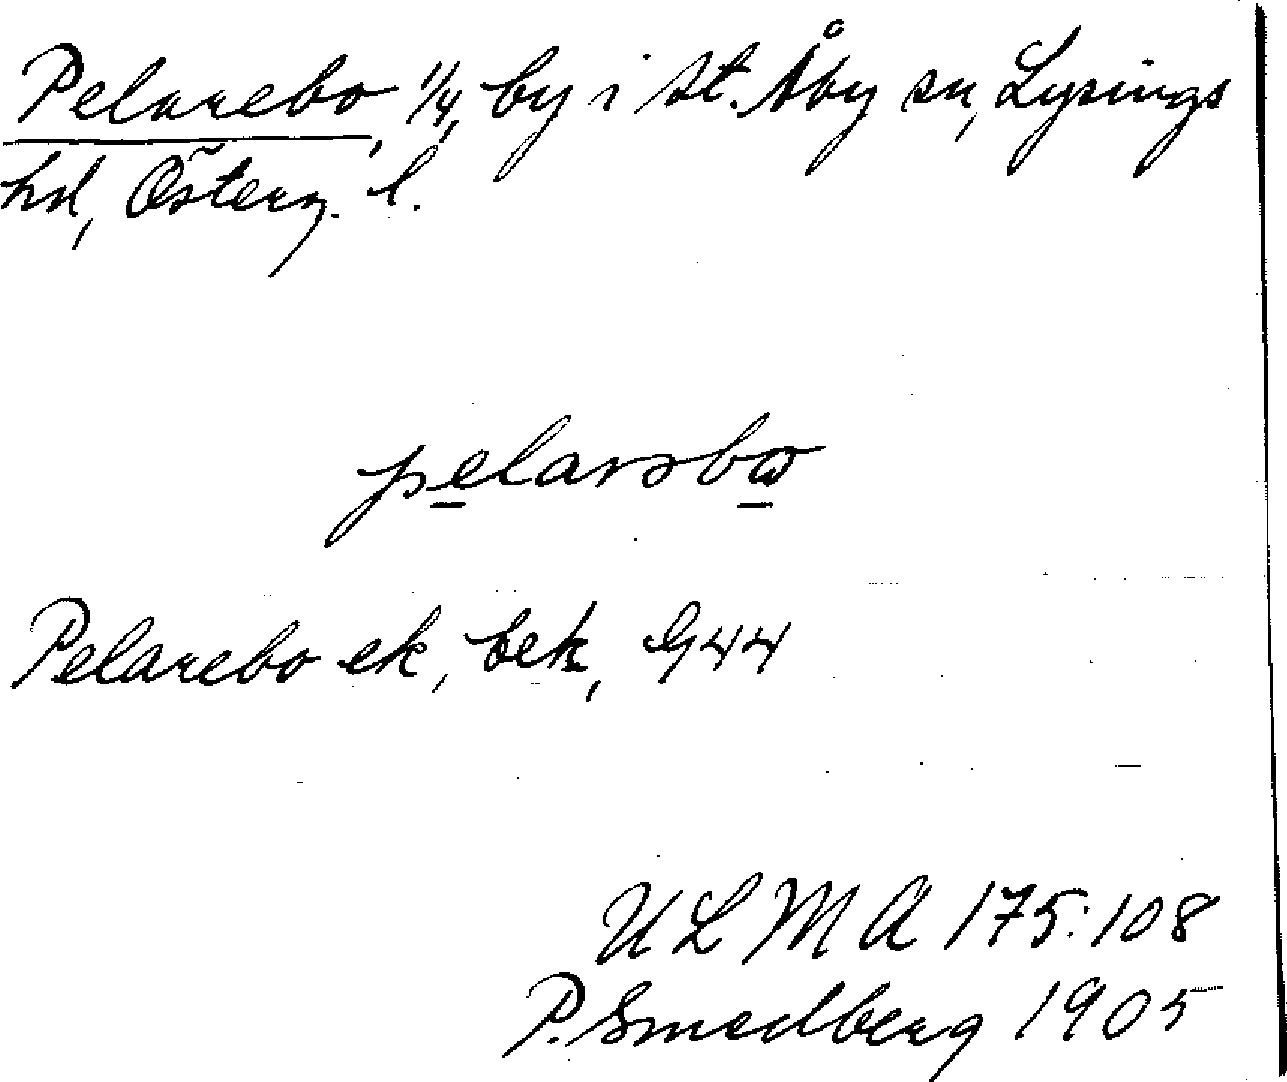 Pelarebo, 1/4, by i St. Åby sn, Lysings
hd, Österg. l.
pelarəbɷ
Pelarebo ek, bek, G44
ULMA 175:108
P. Smedberg 1905